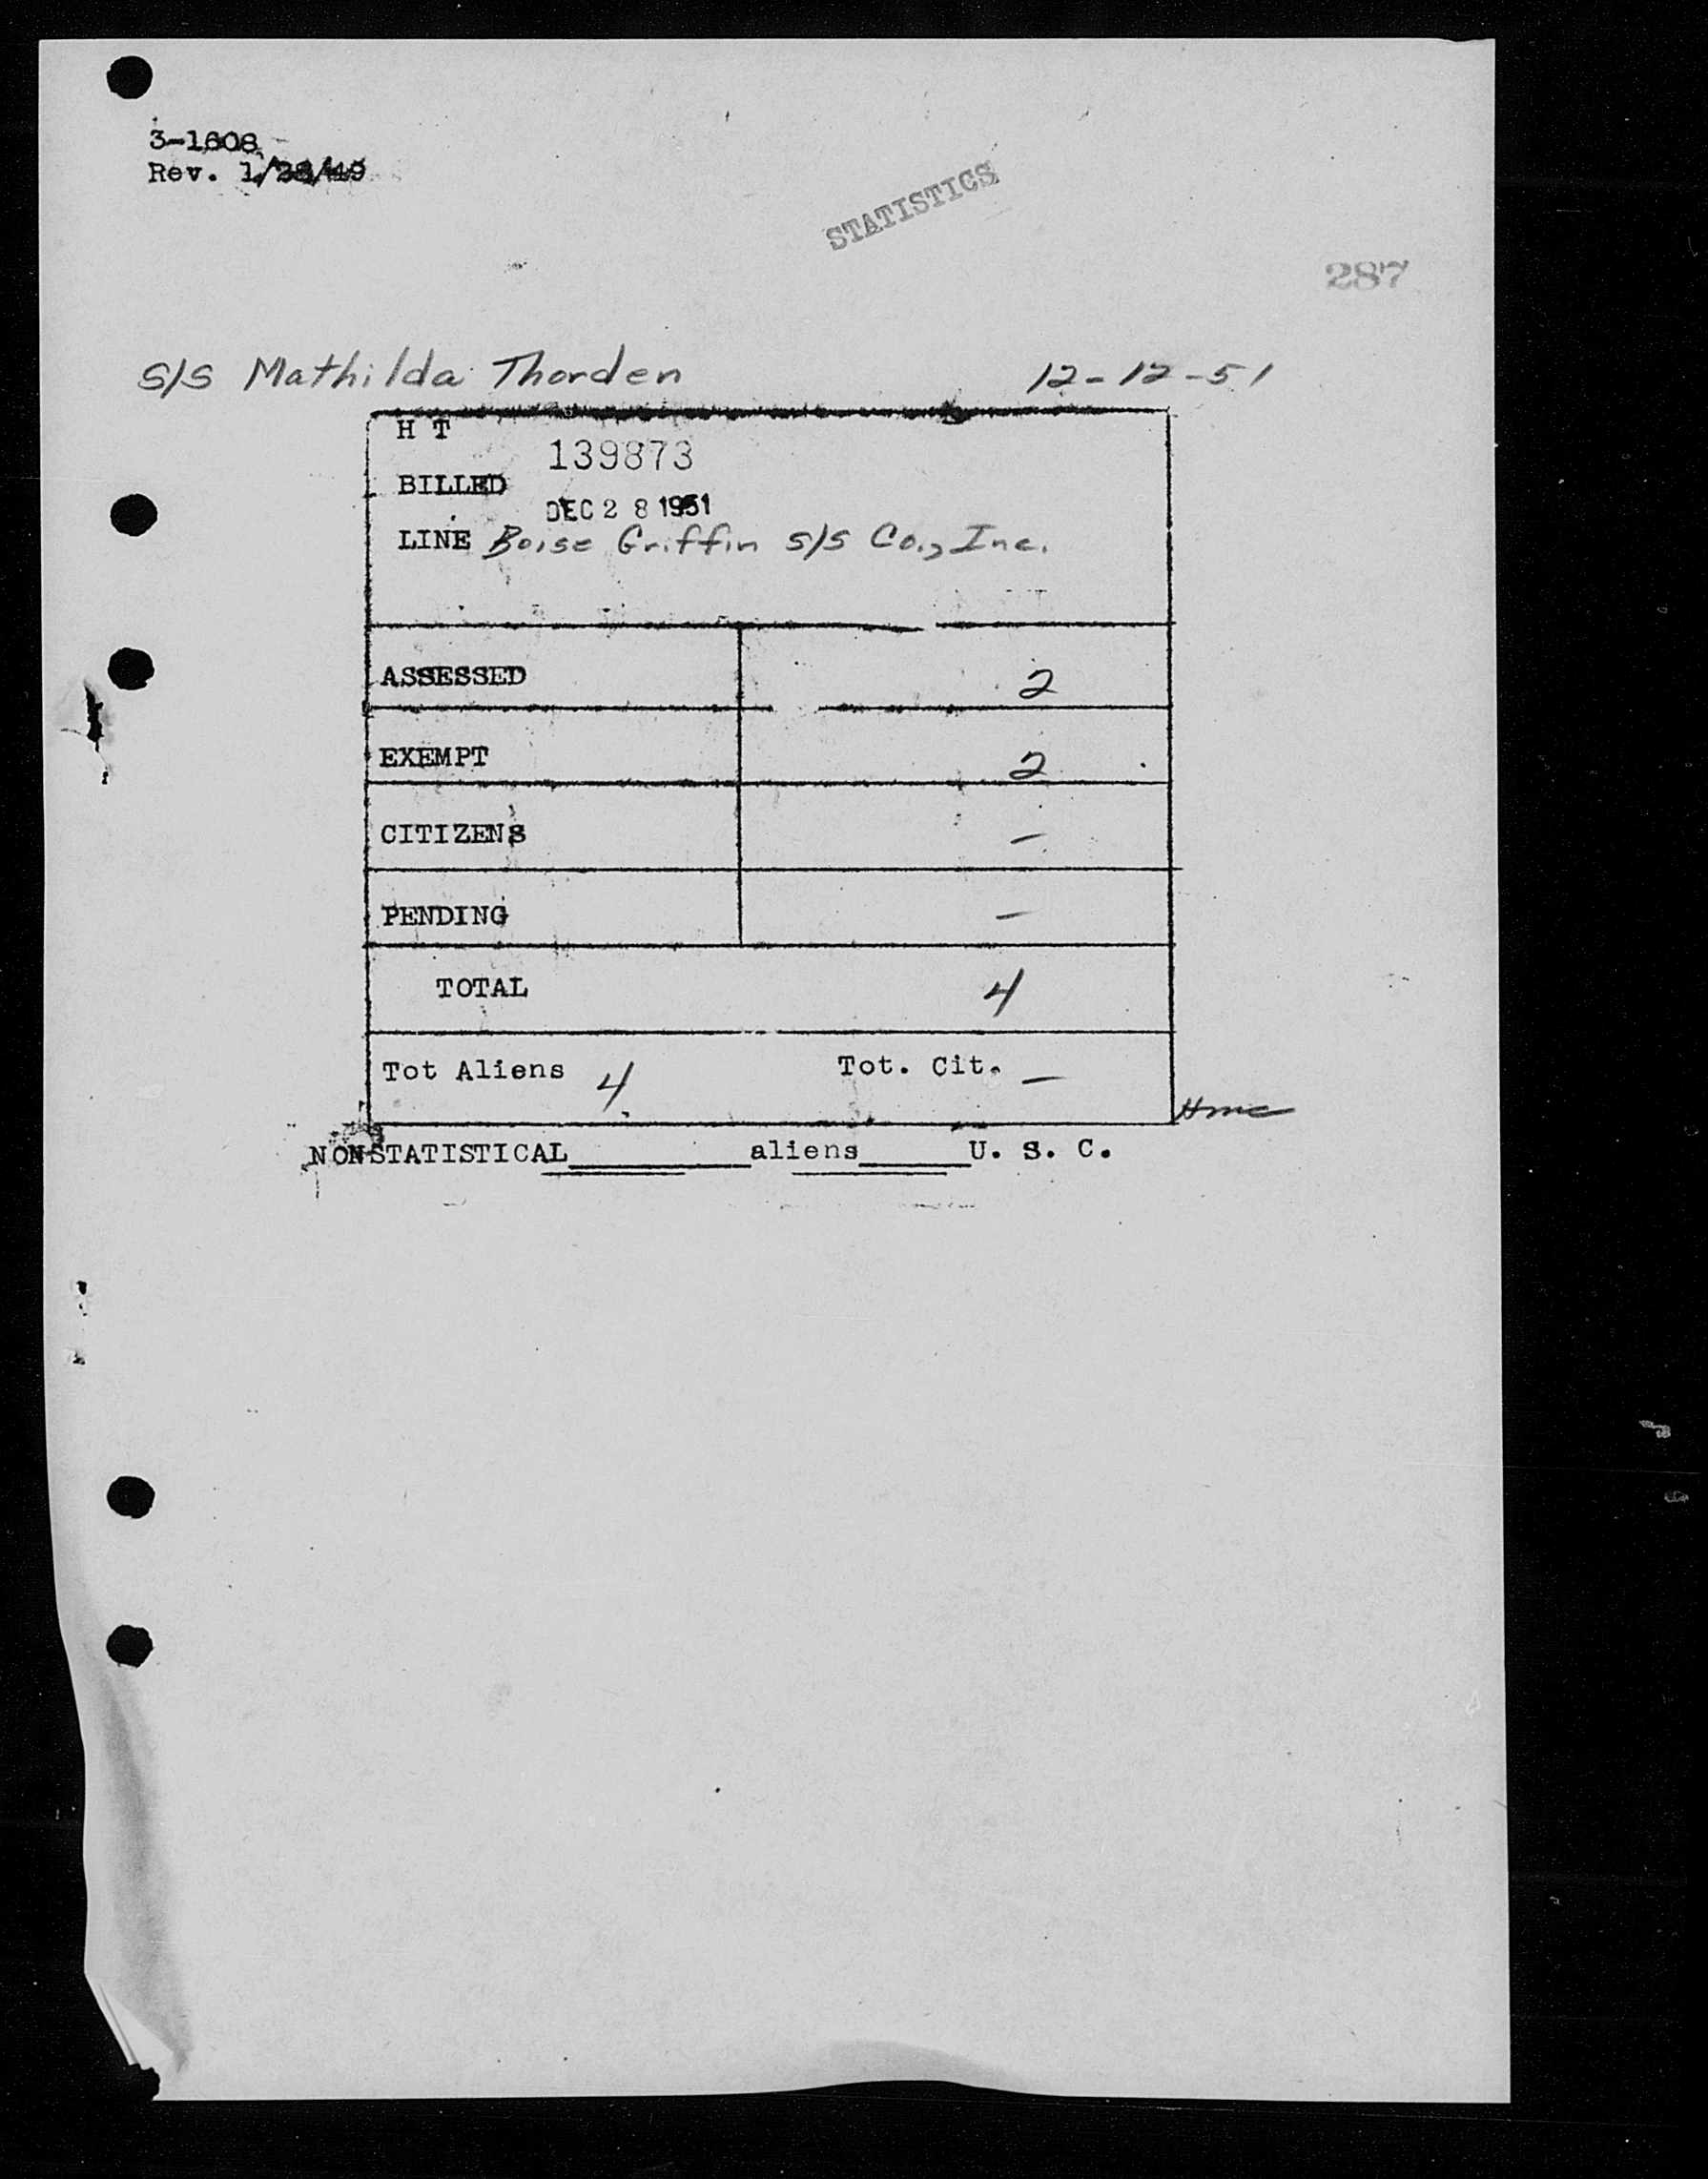 3-1608
Rev. 1/28/49
STATISTICS
287
S/S Mathilda Thorden 12-12-51
H T
139873
BILLED
DEC 28 1951
LINE Boise Griffin S/S Co., Inc.
ASSESSED 2
EXEMPT 2
CITIZENS –
PENDING –
TOTAL 4
Tot Aliens 4 Tot. Cit. –
NONSTATISTICAL________aliens_____U. S. C.